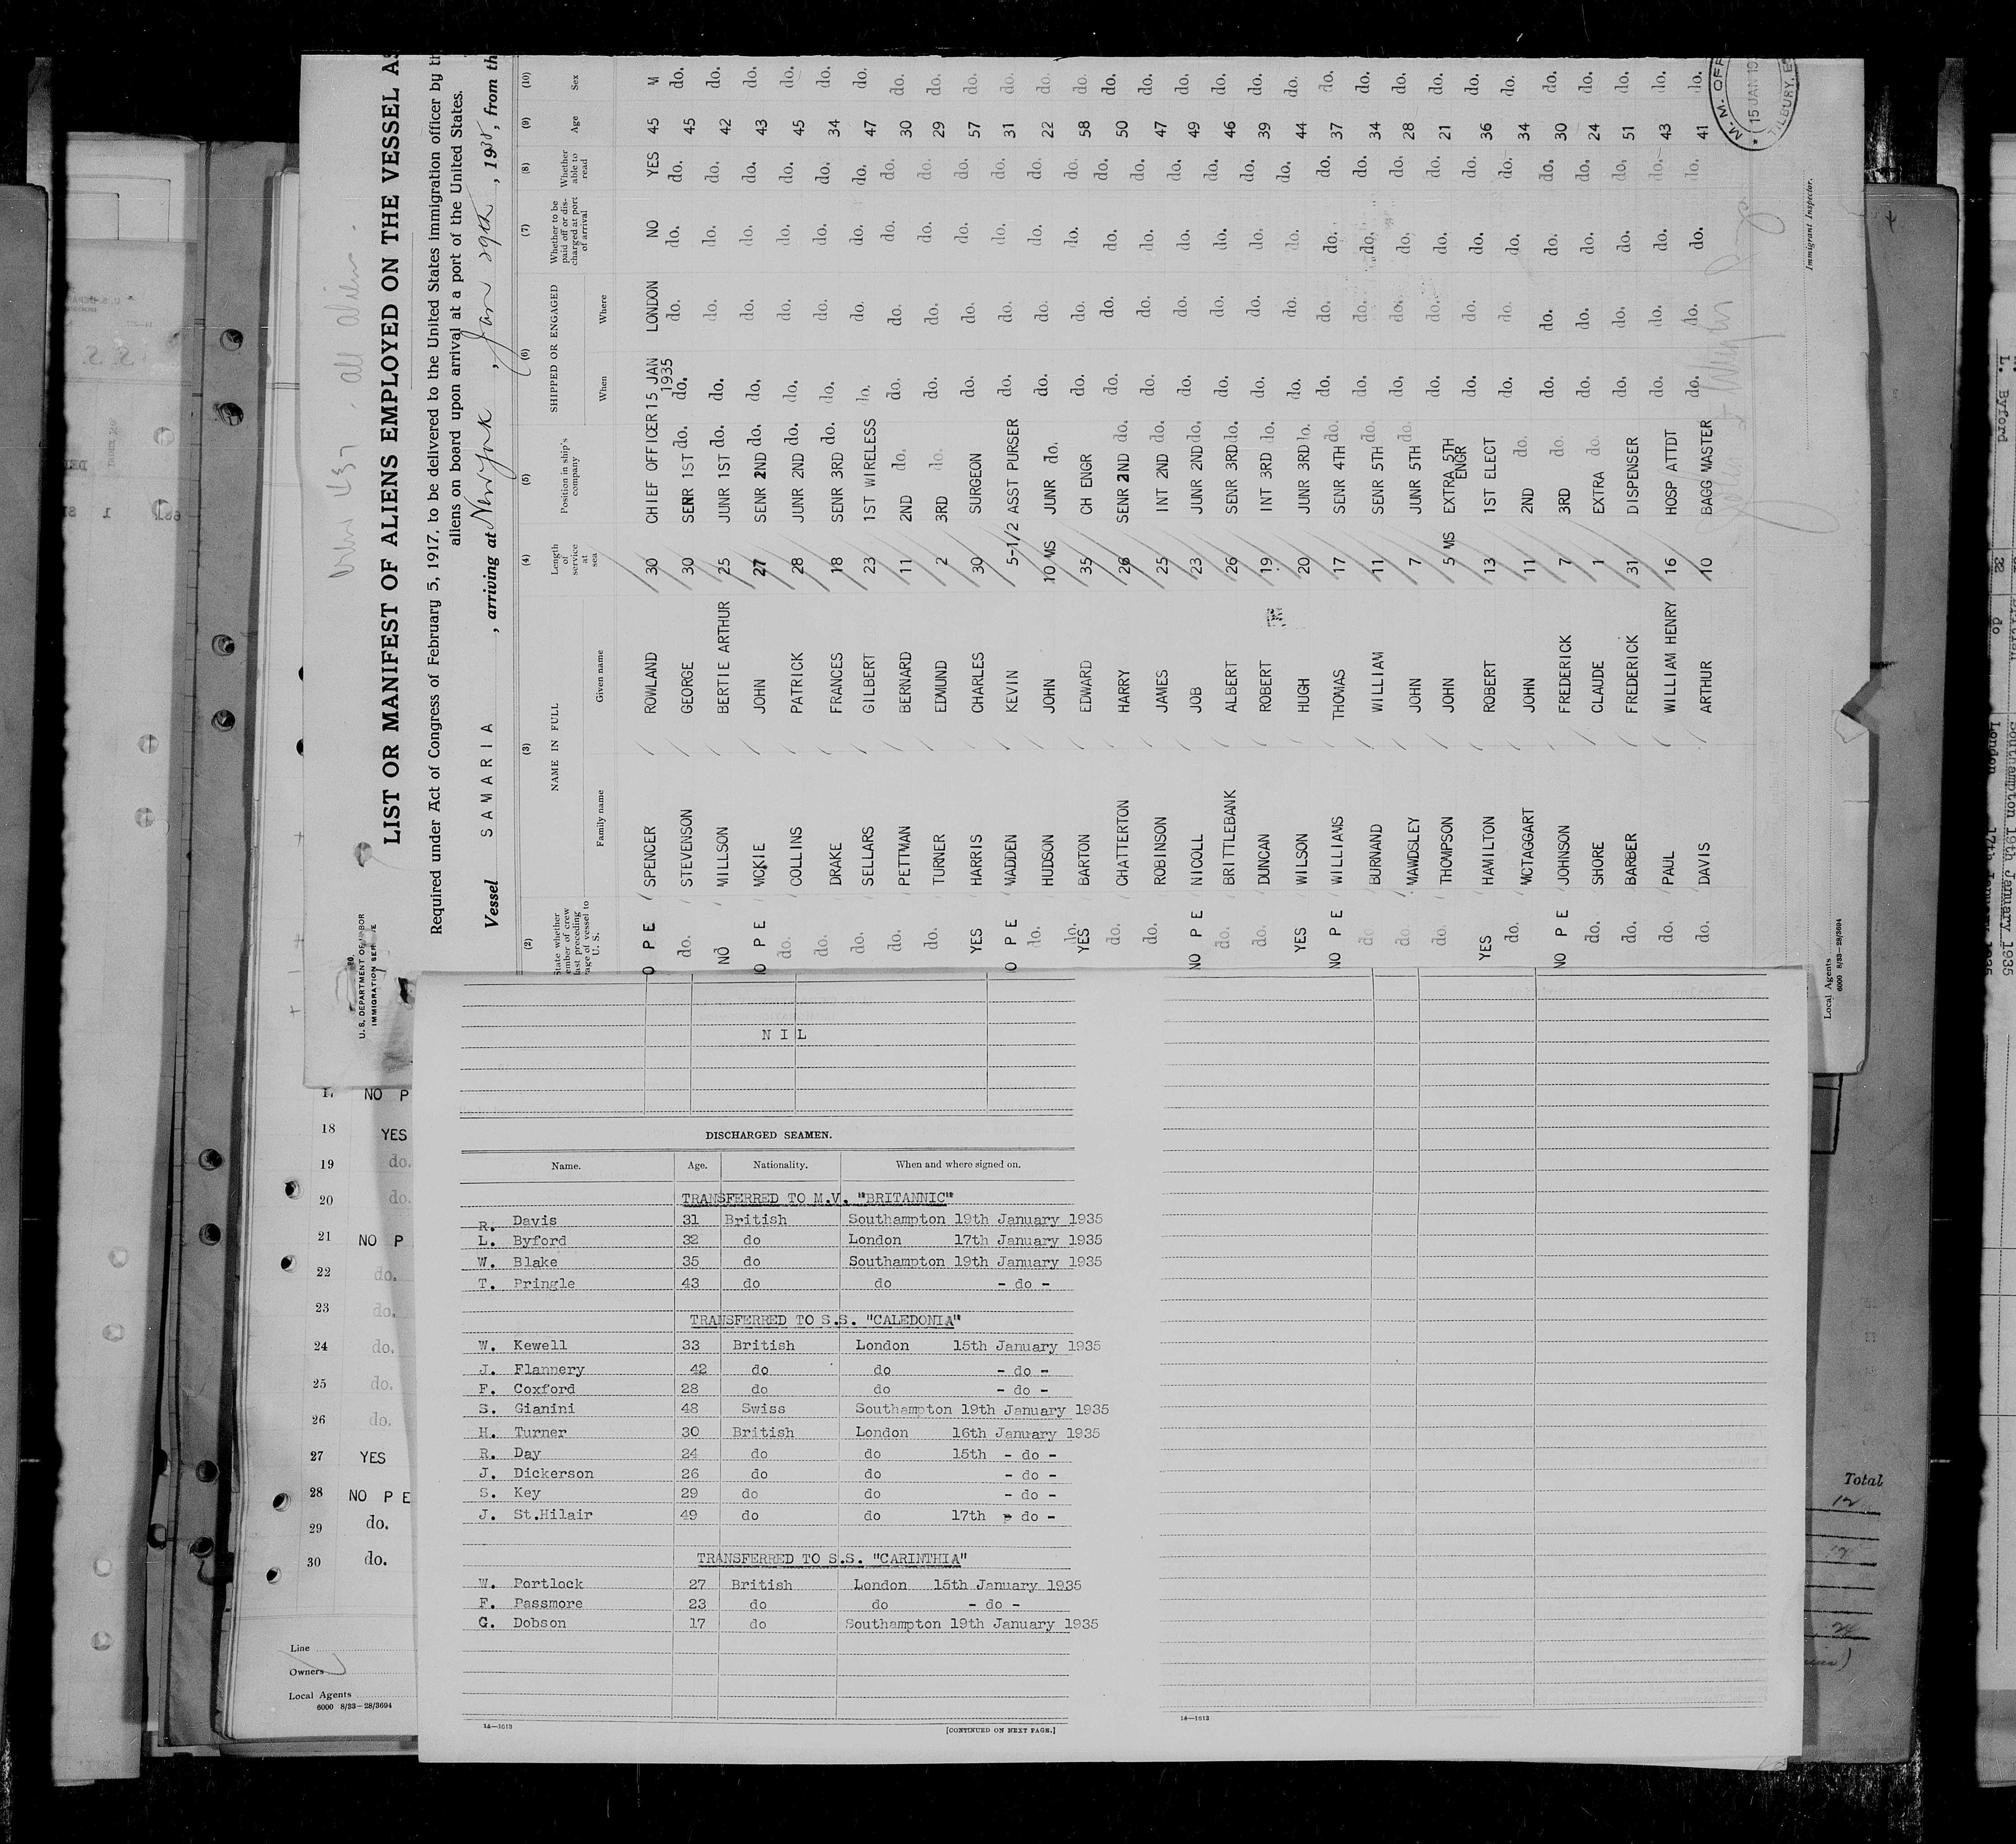 LIST OR MANIFEST OF ALIENS EMPLOYED ON THE VESSEL AS
Required under Act of Congress of February 5, 1917, to be delivered to the United States immigration officer by th
aliens on board upon arrival at a port of the United States.
Vessel SAMARIA, arriving at New York, Jan 29th, 1935, from th
U. S. DEPARTMENT OF LABOR
IMMIGRATION SERVICE
(2) (3) (4) (5) (6) (7) (8) (9) (10)
NAME IN FULL
SHIPPED OR ENGAGED
Family name Given name Length of service at sea Position in ship's company When Where Whether to be paid off or discharged at port of arrival Whether able to read Age Sex
O P E SPENCER ROWLAND 30 CHIEF OFFICER 15 JAN 1935 LONDON NO YES 45 M
do. STEVENSON GEORGE 30 SENR 1ST do. do. do. do. do. 45 do.
NO MILLSON BERTIE ARTHUR 25 JUNR 1ST do. do. do. do. do. 42 do.
O P E MCKIE JOHN 27 SENR 2ND do. do. do. do. do. 43 do.
do. COLLINS PATRICK 28 JUNR 2ND do. do. do. do. do. 45 do.
do. DRAKE FRANCES 18 SENR 3RD do. do. do. do. do. 34 do.
do. SELLARS GILBERT 23 1ST WIRELESS do. do. do. do. 47 do.
do. PETTMAN BERNARD 11 2ND do. do. do. do. do. 30 do.
do. TURNER EDMUND 2 3RD do. do. do. do. do. 29 do.
YES HARRIS CHARLES 30 SURGEON do. do. do. do. 57 do.
O P E MADDEN KEVIN 5-1/2 ASST PURSER do. do. do. do. 31 do.
do. HUDSON JOHN 10 MS JUNR do. do. do. do. do. 22 do.
do. YES BARTON EDWARD 35 CH ENGR do. do. do. do. 58 do.
do. CHATTERTON HARRY 26 SENR 2ND do. do. do. do. do. 50 do.
do. ROBINSON JAMES 25 INT 2ND do. do. do. do. do. 47 do.
NO P E NICOLL JOB 23 JUNR 2ND do. do. do. do. do. 49 do.
do. BRITTLEBANK ALBERT 26 SENR 3RD do. do. do. do. do. 46 do.
do. DUNCAN ROBERT 19 INT 3RD do. do. do. do. do. 39 do.
YES WILSON HUGH 20 JUNR 3RD do. do. do. do. do. 44 do.
NO P E WILLIAMS THOMAS 17 SENR 4TH do. do. do. do. do. 37 do.
do. BURNAND WILLIAM 11 SENR 5TH do. do. do. do. do. 34 do.
do. MAWDSLEY JOHN 7 JUNR 5TH do. do. do. do. do. 28 do.
do. THOMPSON JOHN 5 MS EXTRA 5TH ENGR do. do. do. do. 21 do.
YES HAMILTON ROBERT 13 1ST ELECT do. do. do. do. 36 do.
do. MCTAGGART JOHN 11 2ND do. do. do. do. do. 34 do.
NO P E JOHNSON FREDERICK 7 3RD do. do. do. do. do. 30 do.
do. SHORE CLAUDE 1 EXTRA do. do. do. do. do. 24 do.
do. BARBER FREDERICK 31 DISPENSER do. do. do. do. 51 do.
do. PAUL WILLIAM HENRY 16 HOSP ATTDT do. do. do. do. 43 do.
do. DAVIS ARTHUR 10 BAGG MASTER do. do. do. do. 41 do.
M. M. OFF
15 JAN 19
TILBURY, E
Immigrant Inspector.
Local Agents
6000 8/33—28/3694
NIL
DISCHARGED SEAMEN.
Name. Age. Nationality. When and where signed on.
TRANSFERRED TO M.V. "BRITANNIC"
R. Davis 31 British Southampton 19th January 1935
L. Byford 32 do London 17th January 1935
W. Blake 35 do Southampton 19th January 1935
T. Pringle 43 do do - do -
TRANSFERRED TO S.S. "CALEDONIA"
W. Kewell 33 British London 15th January 1935
J. Flannery 42 do do - do -
F. Coxford 28 do do - do -
S. Gianini 48 Swiss Southampton 19th January 1935
H. Turner 30 British London 16th January 1935
R. Day 24 do do 15th - do -
J. Dickerson 26 do do - do -
S. Key 29 do do - do -
J. St.Hilair 49 do do 17th - do -
TRANSFERRED TO S.S. "CARINTHIA"
W. Portlock 27 British London 15th January 1935
F. Passmore 23 do do - do -
G. Dobson 17 do Southampton 19th January 1935
14—1613
[CONTINUED ON NEXT PAGE.]
14—1613
17 NO P
18 YES
19 do.
20 do.
21 NO P
22 do.
23 do.
24 do.
25 do.
26 do.
27 YES
28 NO P E
29 do.
30 do.
Line
Owners
Local Agents
6000 8/33—28/3694
Total
12
12
24
L. Byford
32
do
London 17th January 1935
Southampton 19th January 1935